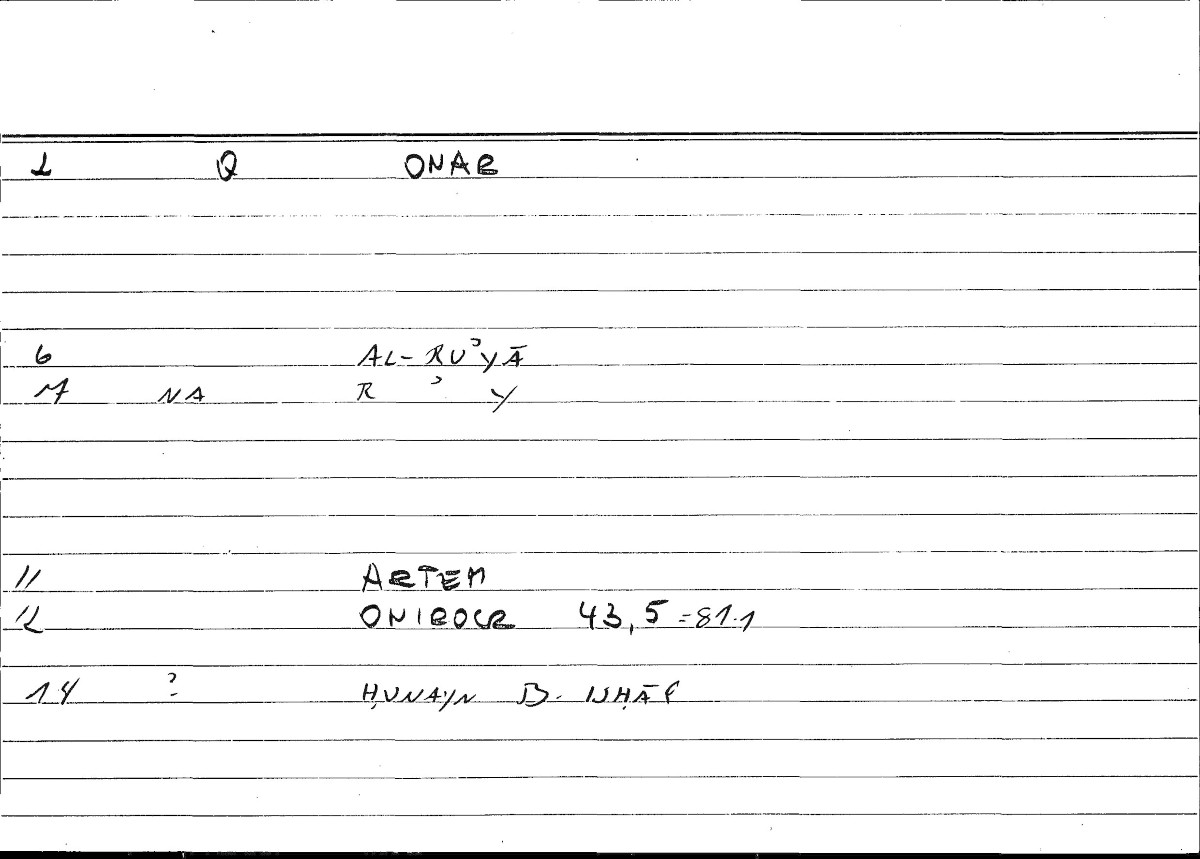 1 Q ONAR
6 AL-RUʾYĀ
7 NA R ʾ Y
11 ARTEM
12 ONIROCR 43,5 =81.1
14 ? ḤUNAYN B. ISḤĀQ